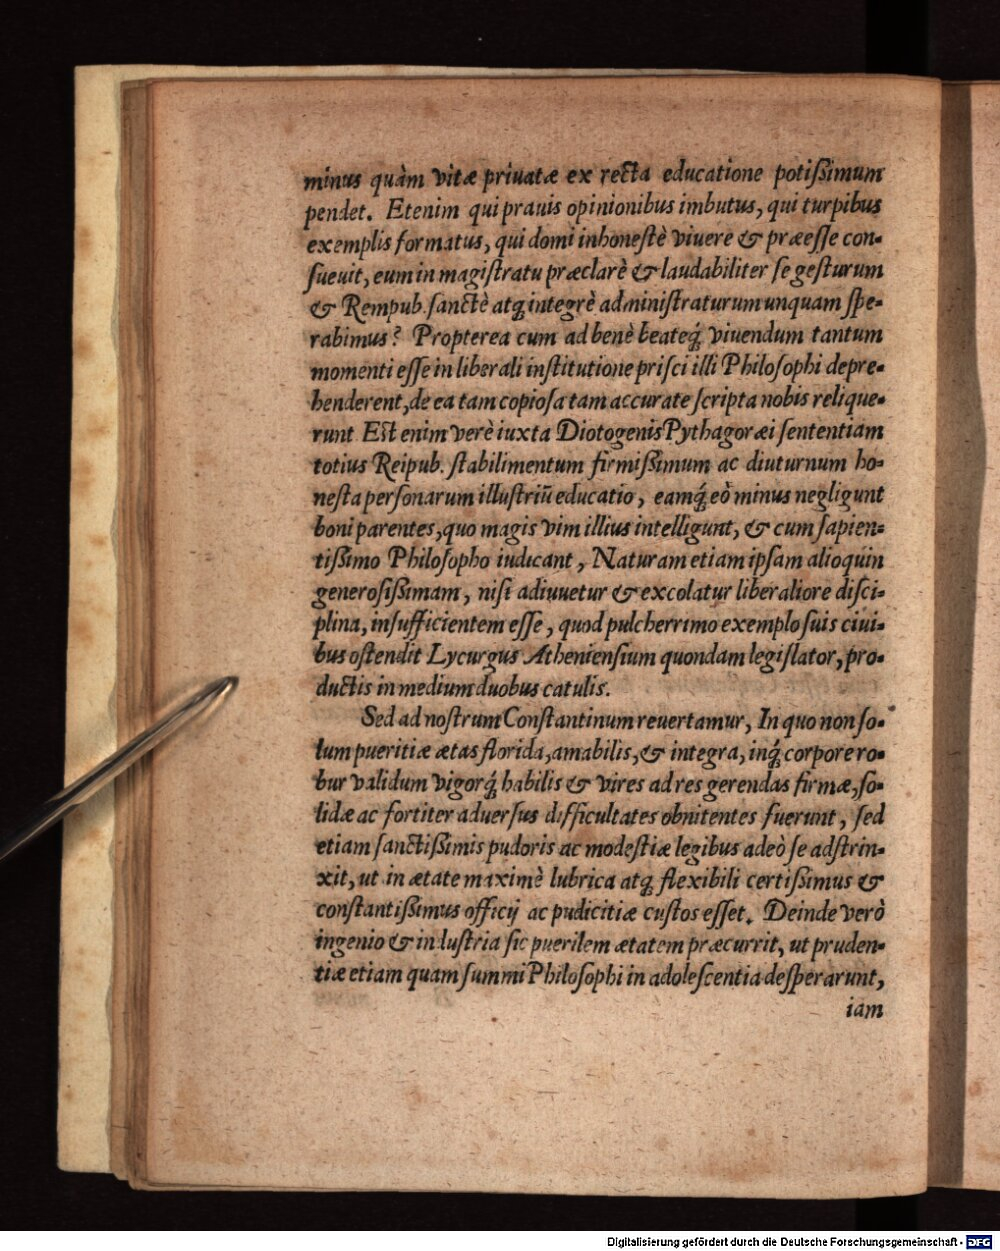 minus quàm vitæ priuatæ ex recta educatione potißimum
pendet. Etenim qui prauis opinionibus imbutus, qui turpibus
exemplis formatus, qui domi inhonestè viuere & præesse con-
sueuit, eum in magistratu præclarè & laudabiliter se gesturum
& Rempub. sanctè atq́ integrè administraturum unquam spe-
rabimus? Propterea cum ad benè beateq́ viuendum tantum
momenti esse in liberali institutione prisci illi Philosophi depre-
henderent, de ea tam copiosa tam accurate scripta nobis relique-
runt Est enim verè iuxta Diotogenis Pythagoræi sententiam
totius Reipub. stabilimentum firmißimum ac diuturnum ho-
nesta personarum illustriũ educatio, eamq́ eò minus negligunt
boni parentes, quo magis vim illius intelligunt, & cum sapien-
tißimo Philosopho iudicant, Naturam etiam ipsam alioquin
generosißimam, nisi adiuuetur & excolatur liberaliore disci-
plina, insufficientem esse, quod pulcherrimo exemplo suis ciui-
bus ostendit Lycurgus Atheniensium quondam legislator, pro-
ductis in medium duobus catulis.
Sed ad nostrum Constantinum reuertamur, In quo non so-
lum pueritiæ ætas florida, amabilis, & integra, inq́ corpore ro-
bur validum vigorq́ habilis & vires ad res gerendas firmæ, so-
lidæ ac fortiter aduersus difficultates obnitentes fuerunt, sed
etiam sanctißimis pudoris ac modestiæ legibus adeò se adstrin-
xit, ut in ætate maximè lubrica atq́ flexibili certißimus &
constantißimus officij ac pudicitiæ custos esset. Deinde verò
ingenio & industria sic puerilem ætatem præcurrit, ut pruden-
tiæ etiam quam summi Philosophi in adolescentia desperarunt,
iam
Digitalisierung gefördert durch die Deutsche Forschungsgemeinschaft - DFG